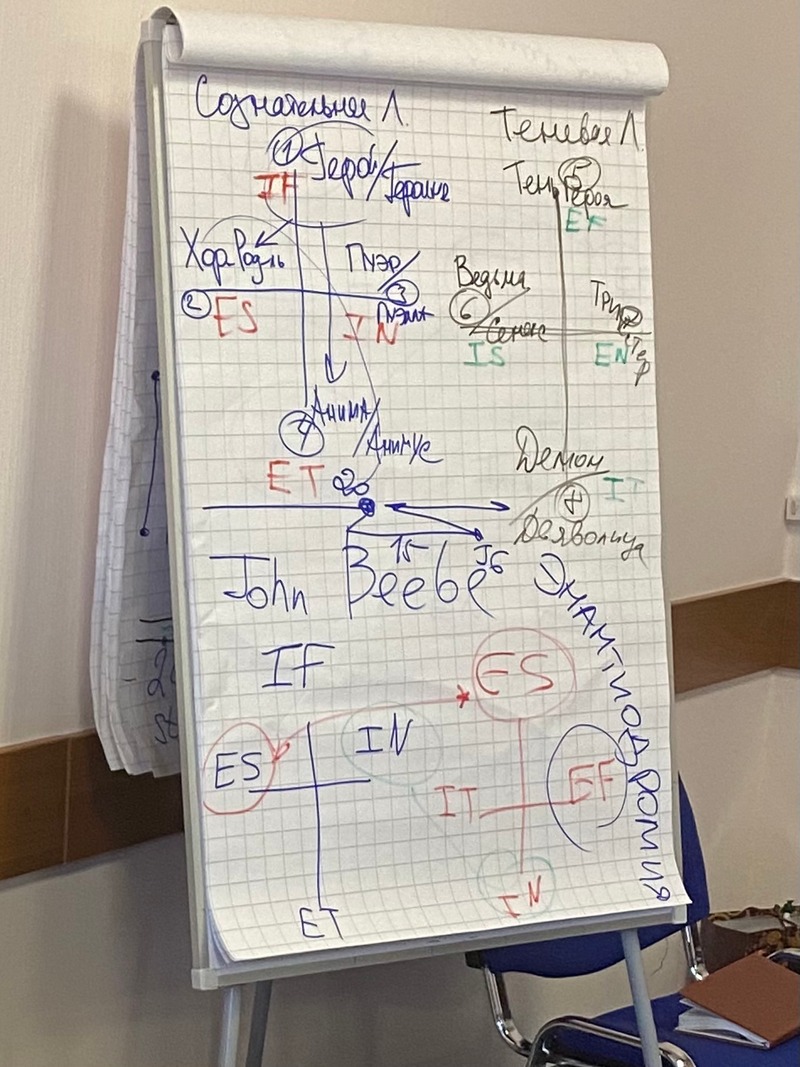 Сознательная Л.
① Герой/
Героиня
IF
Хор. Род-ль
Пуэр/
Пуэлла
② ES
③
IN
④ Анима/
Анимус
ET
Теневая Л.
Тень ⑤ Героя
EF
Ведьма
⑥ Сенекс
IS
Трикстер
EN
Демон
IT
⑧
Дьяволица
20
15
John Beebe
Энантиодромия
IF
ES
ES
IN
IT
EF
ET
IN